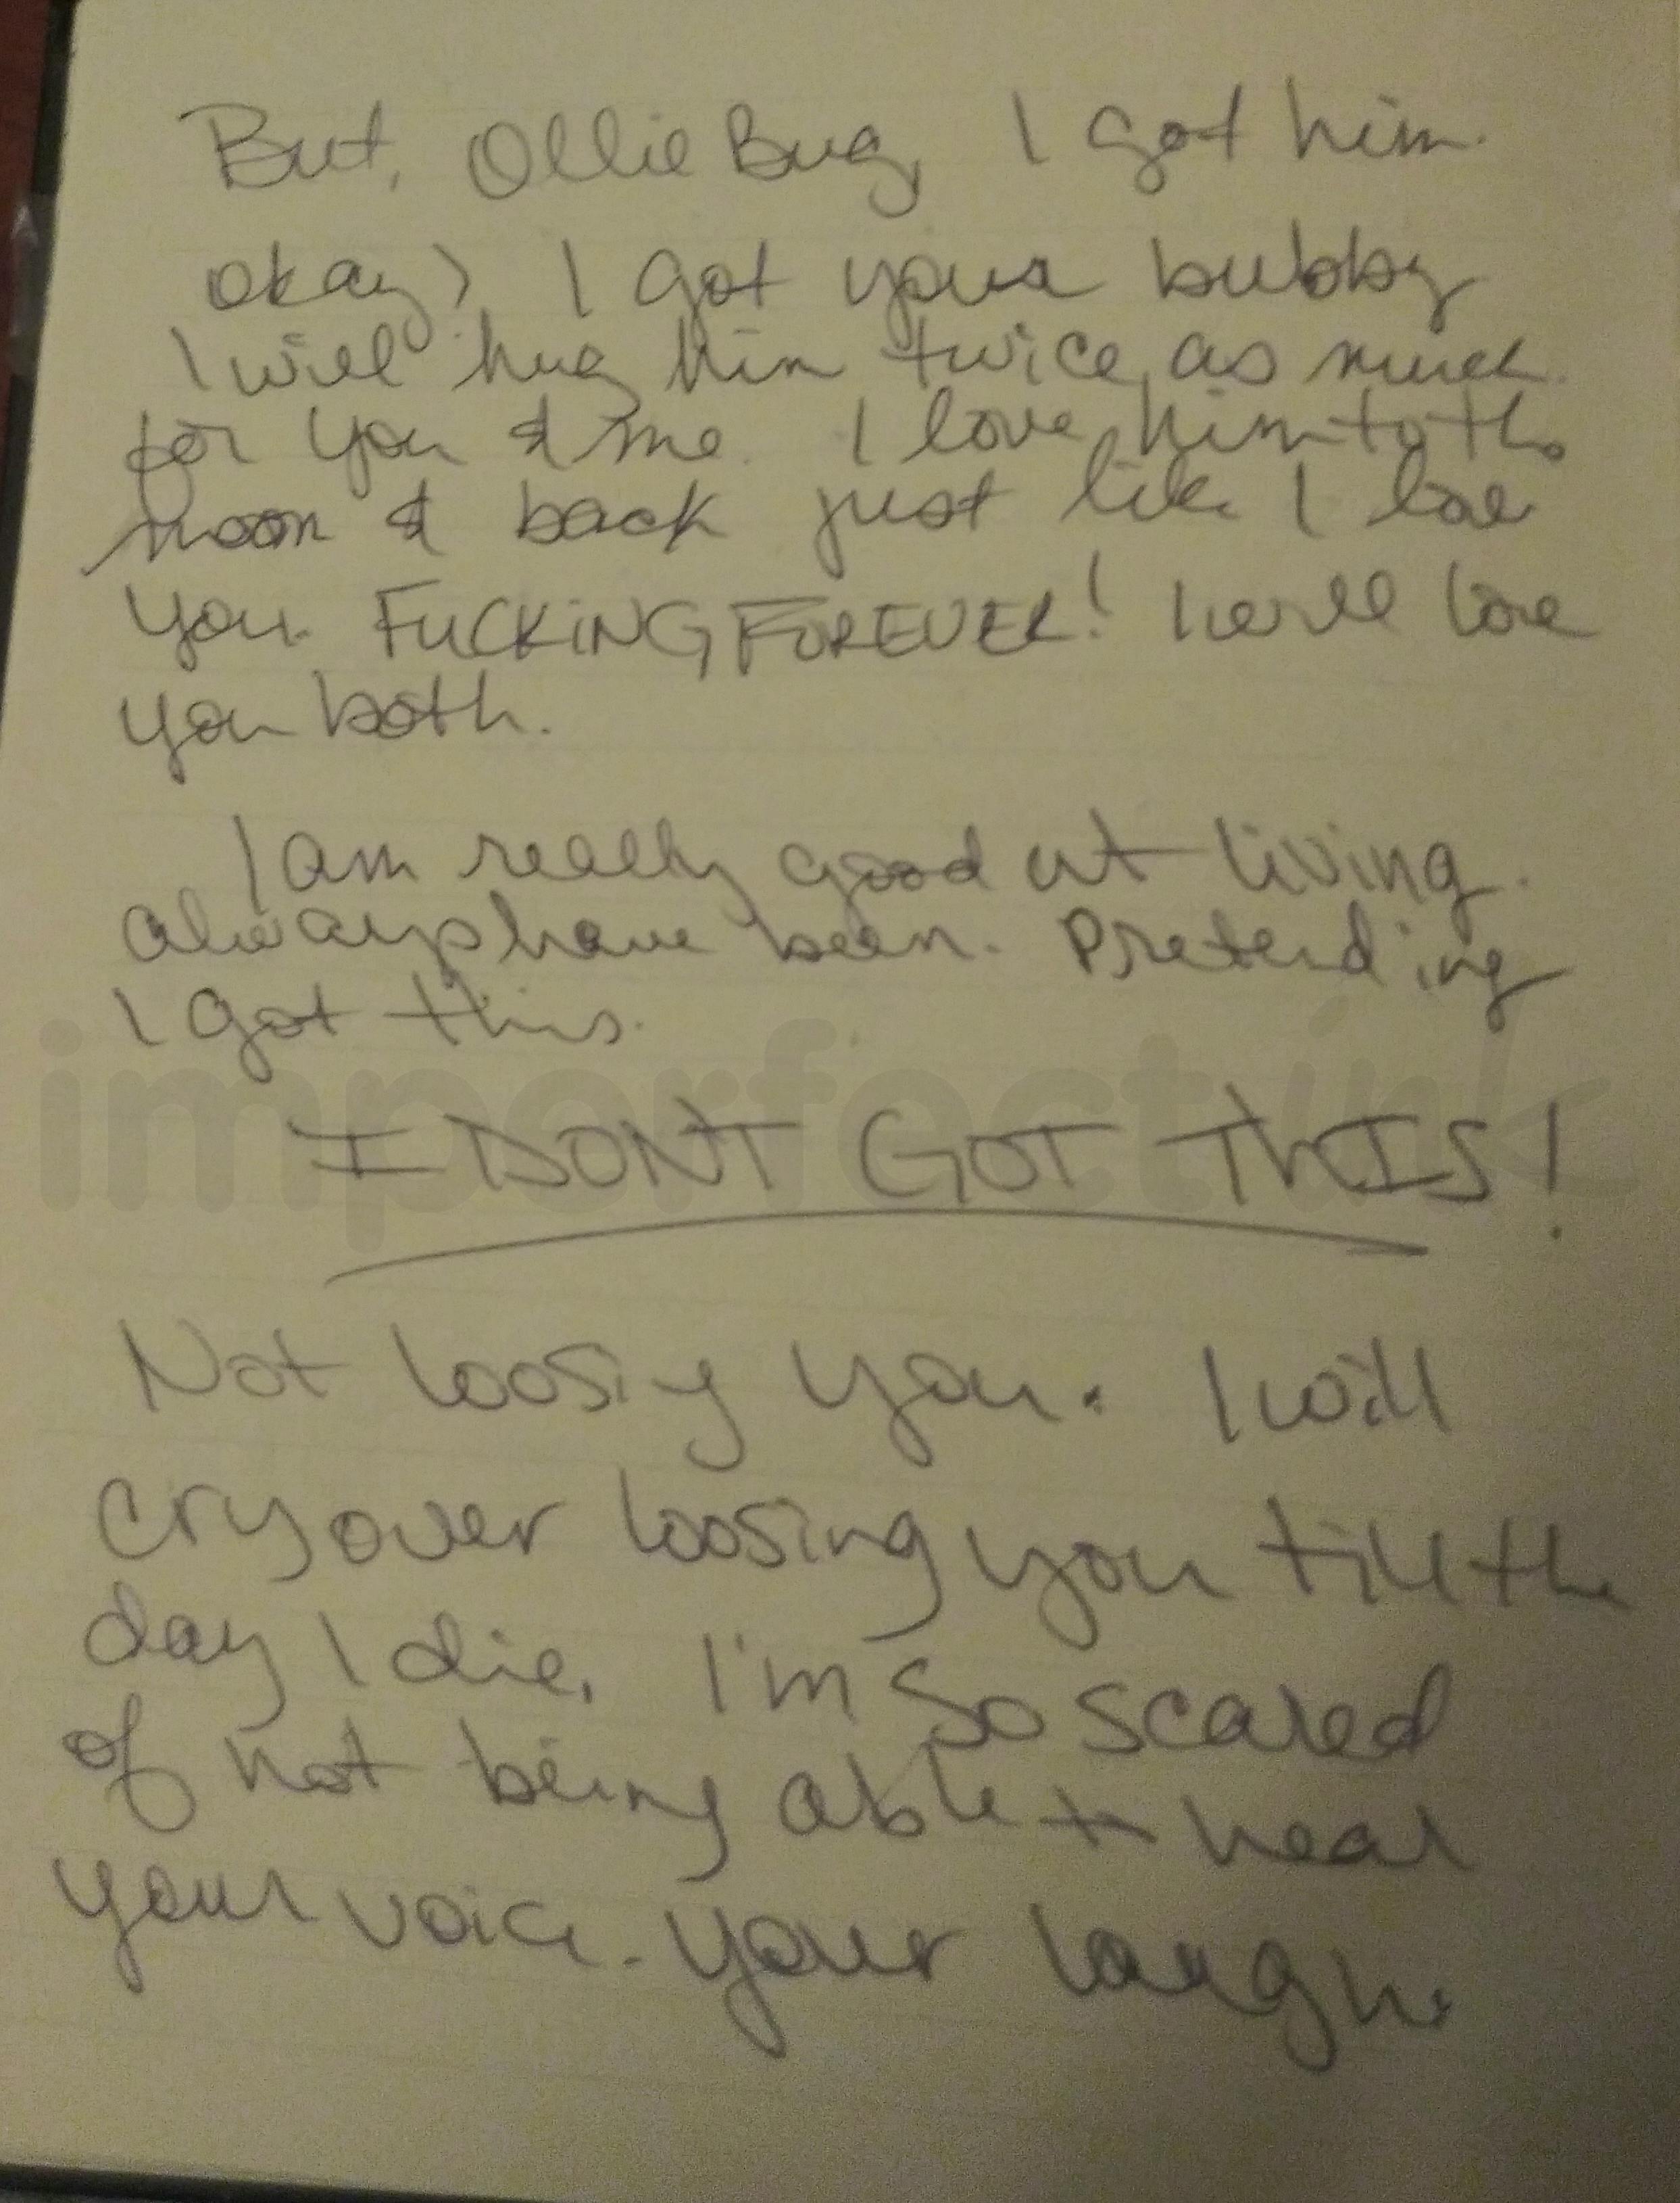 But, Ollie Bug, I got him.
okay? I got your bubby
I will hug him twice as much
for you & me. I love him to the
moon & back just like I love
you. FUCKING FOREVER! I will love
you both.
I am really good at living.
always have been. Pretending
I got this.
imperfect ink
I DONT GOT THIS!
Not loosing you. I will
cry over loosing you till the
day I die. I'm so scared
of not being able to hear
your voice. Your laugh.